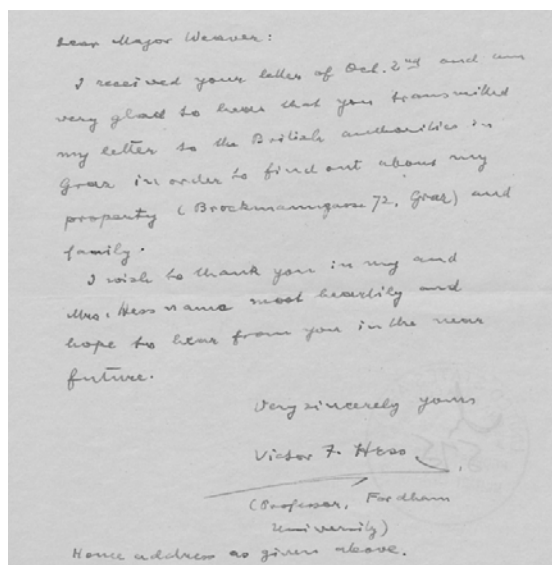 Dear Major Weaver:
I received your letter of Oct. 2nd and am
very glad to hear that you transmitted
my letter to the British authorities in
Graz in order to find out about my
property (Brockmanngasse 72, Graz) and
family.
I wish to thank you in my and
Mrs. Hess name most heartily and
hope to hear from you in the near
future.
Very sincerely yours
Victor F. Hess
(Professor, Fordham
University)
Home address as given above.